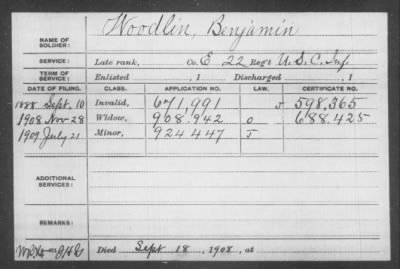 NAME OF SOLDIER: Woodlin, Benjamin
SERVICE: Late rank, Co. E 22 Reg't U.S.C. Inf
TERM OF SERVICE: Enlisted , 1 Discharged , 1
DATE OF FILING. CLASS. APPLICATION NO. LAW. CERTIFICATE NO.
1888 Sept. 10 Invalid, 671,991 J 598,365
1908 Nov 28 Widow, 908.942 O 688.425
1909 July 21 Minor, 924.447 J
ADDITIONAL SERVICES:
REMARKS:
Died Sept 18, 1908, at